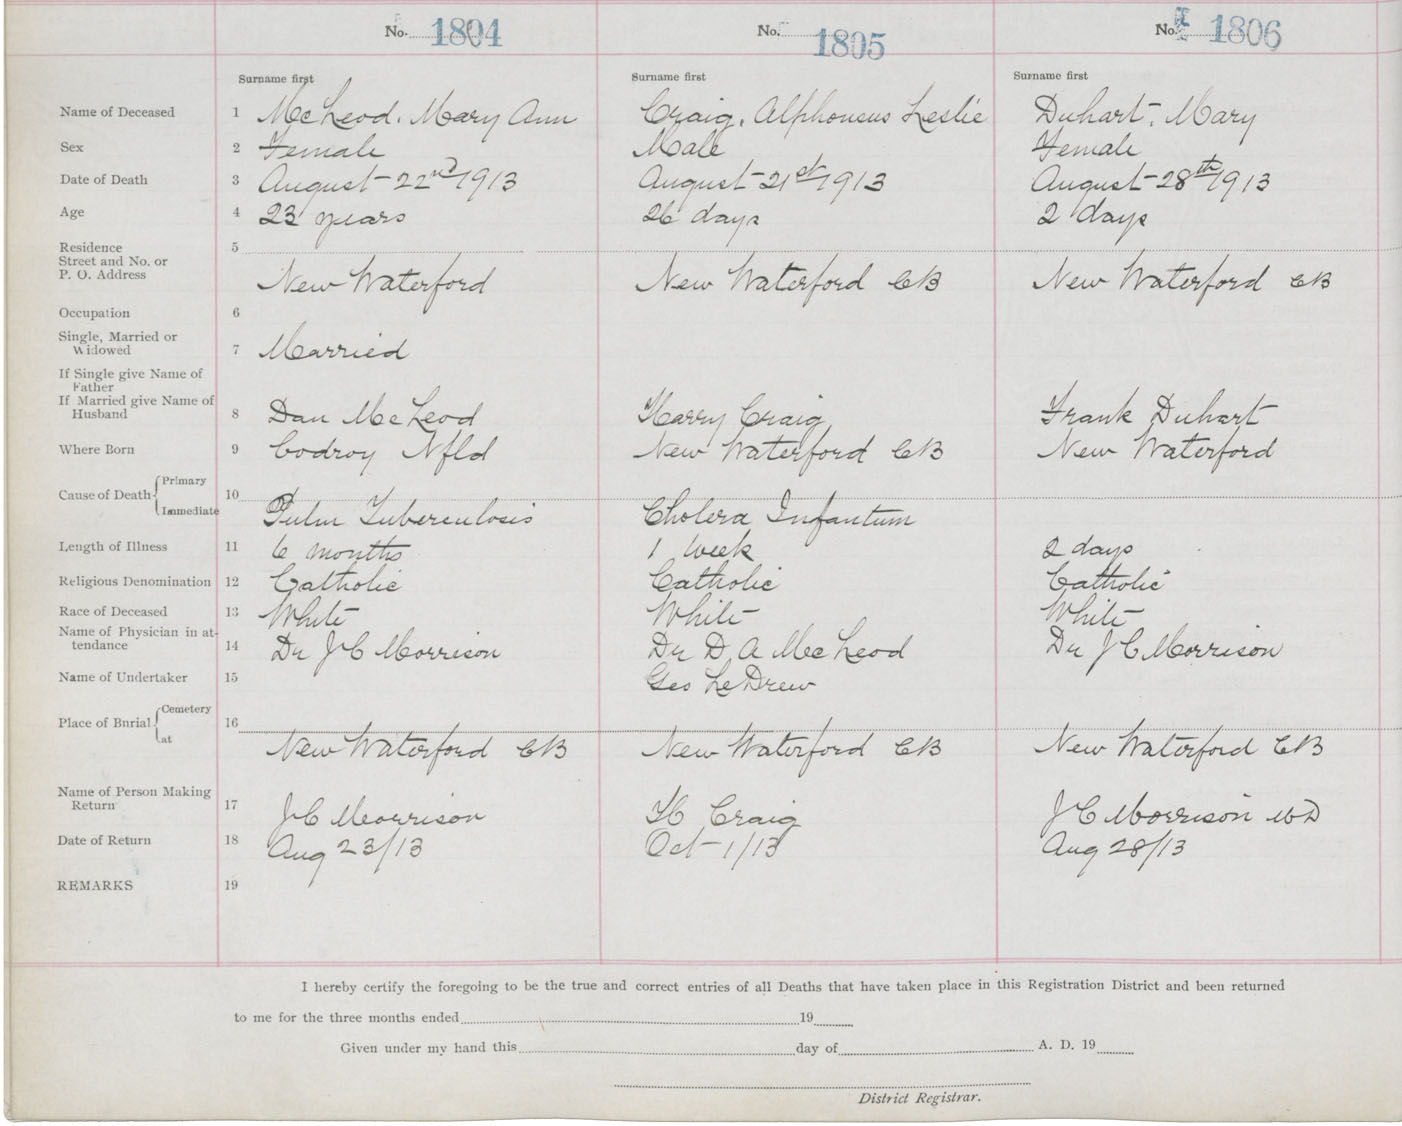 No. 1804 No. 1805 No. 1806
Surname first Surname first Surname first
Name of Deceased 1 McLeod. Mary Ann Craig, Alphonsus Leslie Duhart, Mary
Sex 2 Female Male Female
Date of Death 3 August 22nd 1913 August 21st 1913 August 28th 1913
Age 4 23 years 26 days 2 days
Residence 5
Street and No. or
P. O. Address New Waterford New Waterford CB New Waterford CB
Occupation 6
Single, Married or
Widowed 7 Married
If Single give Name of
Father
If Married give Name of
Husband 8 Dan McLeod Harry Craig Frank Duhart
Where Born 9 Codroy Nfld New Waterford CB New Waterford
Cause of Death Primary 10
Immediate Pulm Tuberculosis Cholera Infantum
Length of Illness 11 6 months 1 week 2 days
Religious Denomination 12 Catholic Catholic Catholic
Race of Deceased 13 White White White
Name of Physician in at-
tendance 14 Dr J C Morrison Dr D A McLeod Dr J C Morrison
Name of Undertaker 15 Geo LeDrew
Place of Burial Cemetery 16
at New Waterford CB New Waterford CB New Waterford CB
Name of Person Making
Return 17 J C Morrison H Craig J C Morrison MD
Date of Return 18 Aug 23/13 Oct 1/13 Aug 28/13
REMARKS 19
I hereby certify the foregoing to be the true and correct entries of all Deaths that have taken place in this Registration District and been returned
to me for the three months ended 19
Given under my hand this day of A. D. 19
District Registrar.